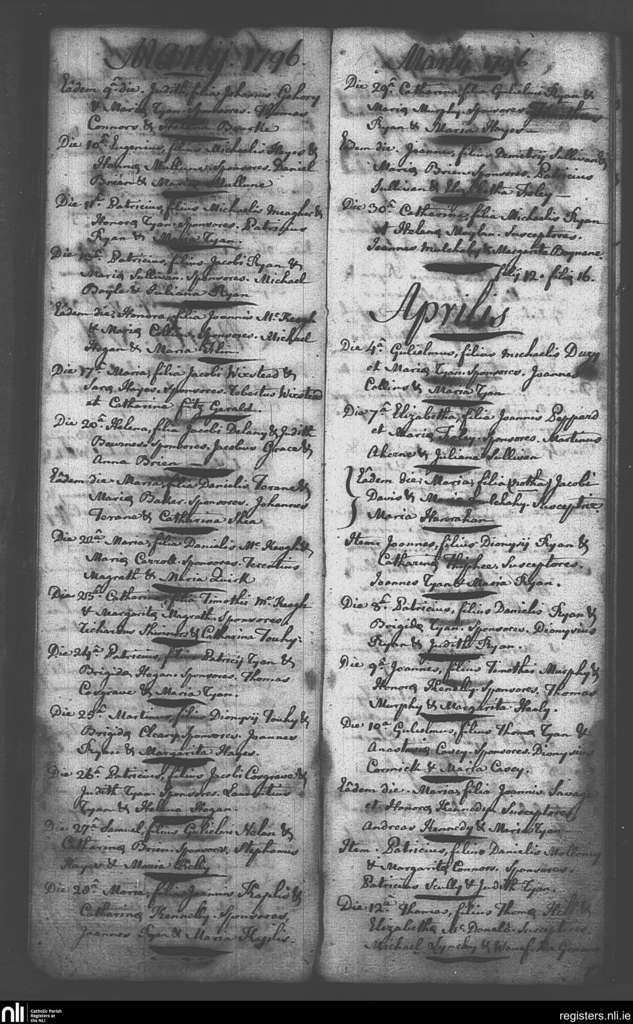 Martij 1796.
Eadem 9a die. Judith, filia Johannis
& Maria Tyan. Sponsores. Thomas
Connors & Bourke
Die 10a Eugenius, filius Michaelis Hayes &
Mullune. Sponsores. Daniel
Brien & Mullune
Die 11a Patricius, filius Michaelis Meagher &
Honora Tyan. Sponsores. Patricius
Ryan & Maria Tyan.
Die Patricius, filius Jacobi Ryan &
Maria Sullivan. Sponsores. Michael
Boyle & Juliana Ryan
Eadem die; Honora, filia Joannis McKeogh
& Maria Sponsores. Michael
Hogan & Maria
Die 17a Maria, filia Jacobi Wixstead &
Sara Hayes. Sponsores. Tobertus Wixstead
et Catharina Fitz Gerald.
Die 20a Helena, filia Jacobi Delany & Judith
Bournes. Sponsores. Jacobus Grace &
Anna Brien
Eadem die. Maria, filia Danielis Torane &
Maria Baker. Sponsores. Johannes
Torane & Catharina Shea
Die 22a Maria, filia Danielis McKeogh &
Maria Carroll. Sponsores. Terentius
Magrath & Maria Quirk
Die 23a Catharina, filia Timothei McKeogh
& Margarita Magrath. Sponsores,
& Catharina Touhy.
Die 24a Patricius, filius Patricij Tyan &
Brigida Hogan. Sponsores. Thomas
Cosgrave & Maria Tyan.
Die 25a Martinus, filius Dionysij Touhy &
Brigida Cleary. Sponsores. Joannes
Ryan & Margarita Hayes.
Die 26a Patricius, filius Jacobi Cosgrave &
Judith Tyan. Sponsores. Laurentius
Tyan & Helena Hogan.
Die 27a Samuel, filius Gulielmi Nolan &
Catharina Brien. Sponsores, Stephanus
Hayes & Maria
Die 28a Maria, filia Joannis &
Catharina Kennelly. Sponsores,
Joannes Ryan & Maria
Martij 1796
Die 29a Catharina, filia Gulielmi Ryan &
Maria Murphy. Sponsores.
Ryan & Maria Hayes
Eadem die. Joannes, filius Demetrij Sullivan &
Maria Brien. Sponsores, Patricius
Sullivan & Elizabetha Foley
Die 30a Catharina, filia Michaelis Ryan
et Helena Moylan. Susceptores.
Joannes Mulchehy & Margarita
filij 12. filia 16.
Aprilis
Die 4a Gulielmus, filius Michaelis
et Maria Tyan. Sponsores. Joannes
Collins & Maria Tyan
Die 7a Elizabetha, filia Joannis Leppard
et Maria Foley. Sponsores. Martinus
Aherne & Juliana Sullivan
Eadem die; Maria, filia Jacobi
Davis & Maria Mulchehy. Susceptrix
Maria Hanrahan
Item. Joannes, filius Dionysij Ryan &
Catharina Susceptores.
Joannes Tyan & Maria Ryan.
Die 8a Patricius, filius Danielis Ryan &
Brigida Tyan. Sponsores. Dionysius
Ryan & Judith Ryan
Die 9a Joannes, filius Timothei Murphy &
Honora Kennelly. Sponsores, Thomas
Murphy & Margarita Healy.
Die 10a Gulielmus, filius Thoma Tyan &
Anastasia Casey. Sponsores. Dionysius
Cormick & Maria Casey.
Eadem die. Maria, filia Joannis Savage
et Honora Kennedy. Susceptores
Andreas Kennedy & Maria Tyan
Item. Patricius, filius Danielis Mullowny
& Margarita Connors. Sponsores.
Patricius Scully & Judith Tyan.
Die 12a Thomas, filius Thoma &
Elizabetha McDonald. Susceptores
Michael Lynchy &
nli
Catholic Parish
Registers at
the NLI
registers.nli.ie